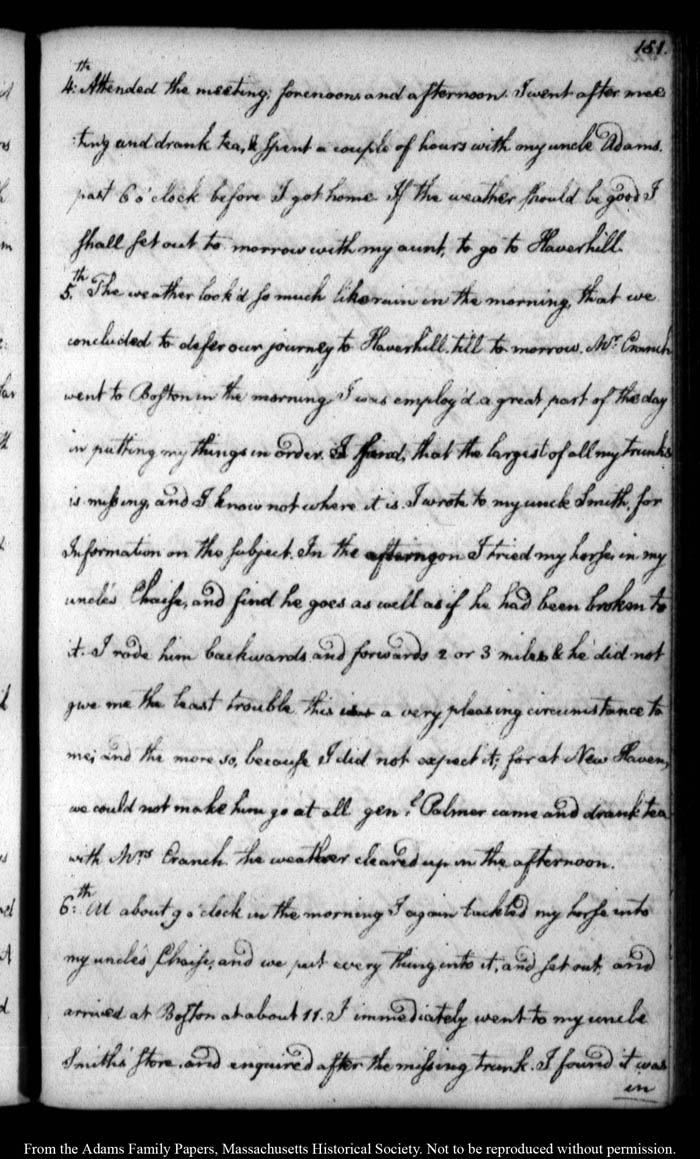 181.
4:th Attended the meeting; forenoon and afternoon. I went after mee
:ting and drank tea, & spent a couple of hours with my uncle Adams.
past 6 o'clock before I got home. If the weather should be good I
shall set out to morrow with my aunt, to go to Haverhill.
5.th The weather look'd so much like rain in the morning, that we
concluded to defer our journey to Haverhill till to morrow. Mr. Cranch
went to Boston in the morning. I was employ'd a great part of the day
in putting my things in order. I find, that the largest of all my trunks
is missing, and I know not where it is. I wrote to my uncle Smith, for
Information on the subject. In the afternoon I tried my horse, in my
uncle's Chaise, and find he goes as well as if he had been broken to
it. I rode him backwards and forwards 2 or 3 miles & he did not
give me the least trouble this is a very pleasing circumstance to
me; and the more so, because I did not expect it; for at New Haven,
we could not make him go at all. gen:l Palmer came and drank tea
with Mrs Cranch. the weather cleared up in the afternoon.
6:th At about 9 o'clock in the morning I again tackled my horse into
my uncle's Chaise, and we put every thing into it, and set out, and
arrived at Boston at about 11. I immediately went to my uncle
Smith's store, and enquired after the missing trunk. I found it was
in
From the Adams Family Papers, Massachusetts Historical Society. Not to be reproduced without permission.